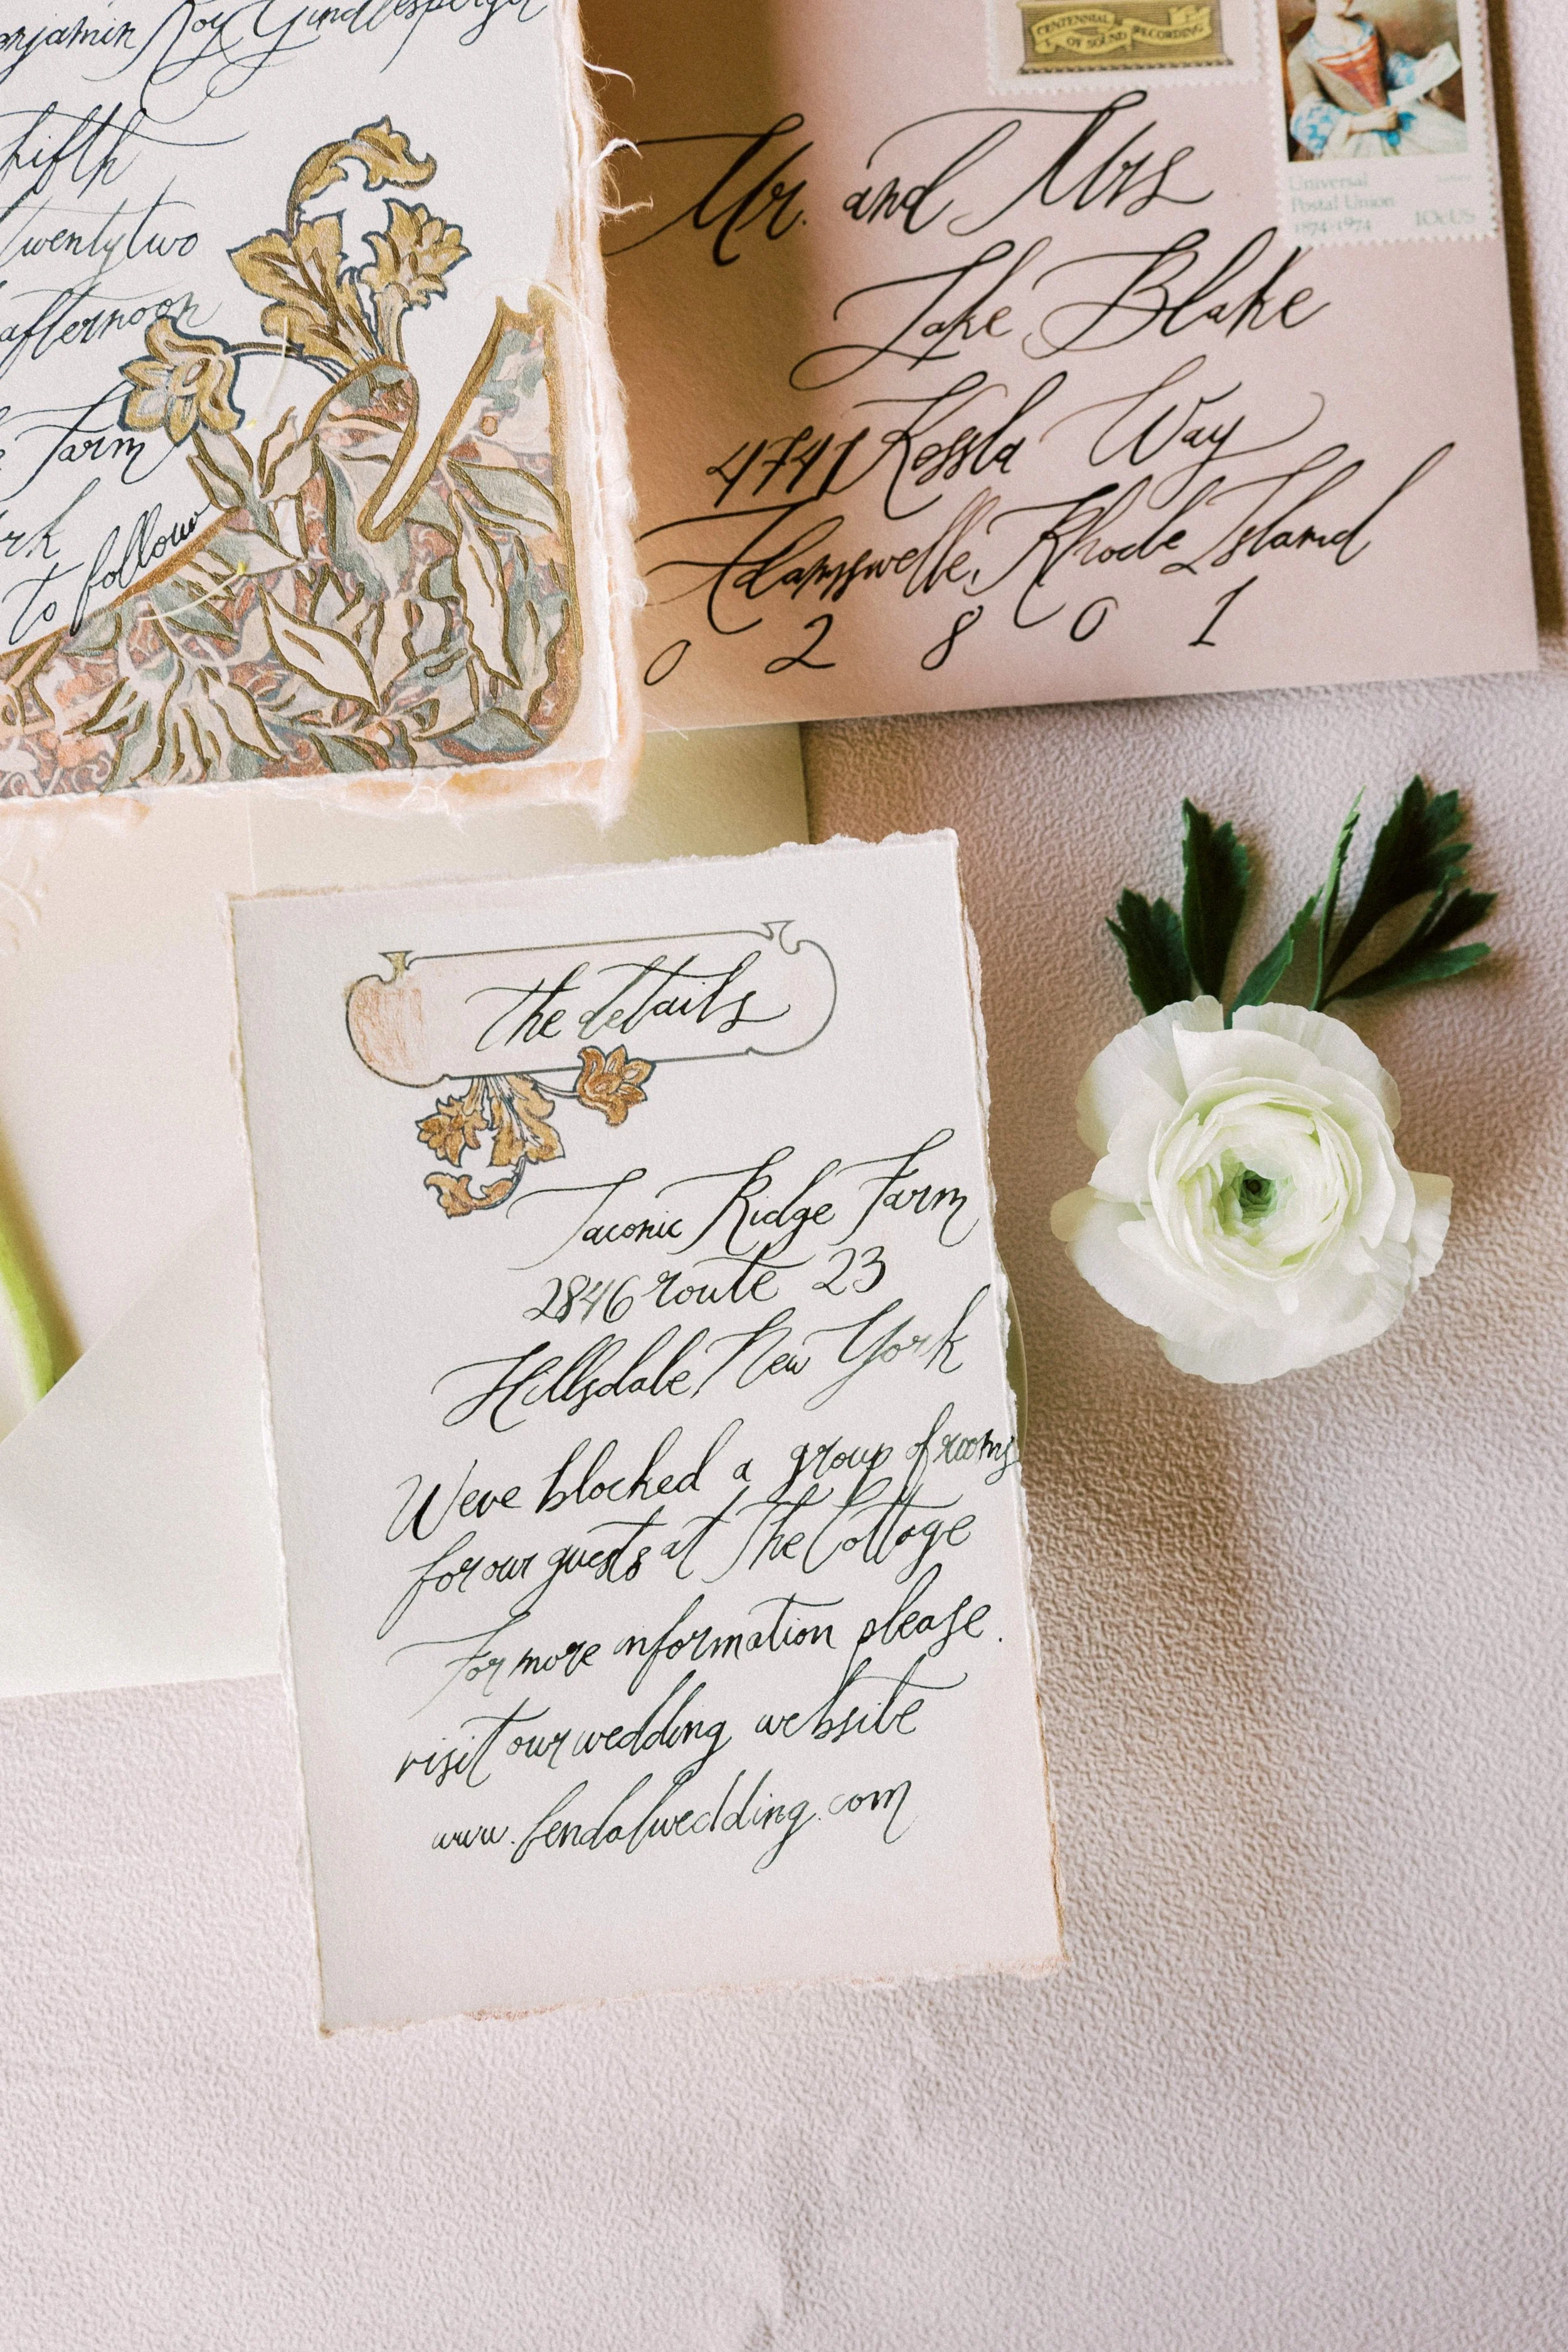 Roy
fifth
twentytwo
afternoon
Farm
to follow
CENTENNIAL
OF SOUND RECORDING
Universal
Postal Union
1874-1974 10c US
Mr. and Mrs
Jake Blake
4741 Way
Rhode Island
0 2 8 0 1
the details
Taconic Ridge Farm
2846 route 23
Hillsdale, New York
Weve blocked a group of rooms
for our guests at The Cottage
For more information please.
visit our wedding website